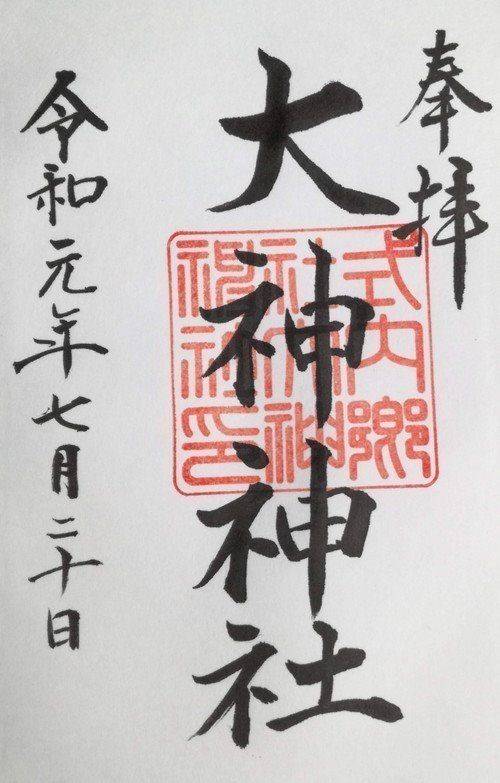 奉拝
大神神社
令和元年七月二十日
式内郷
社大神
神社印